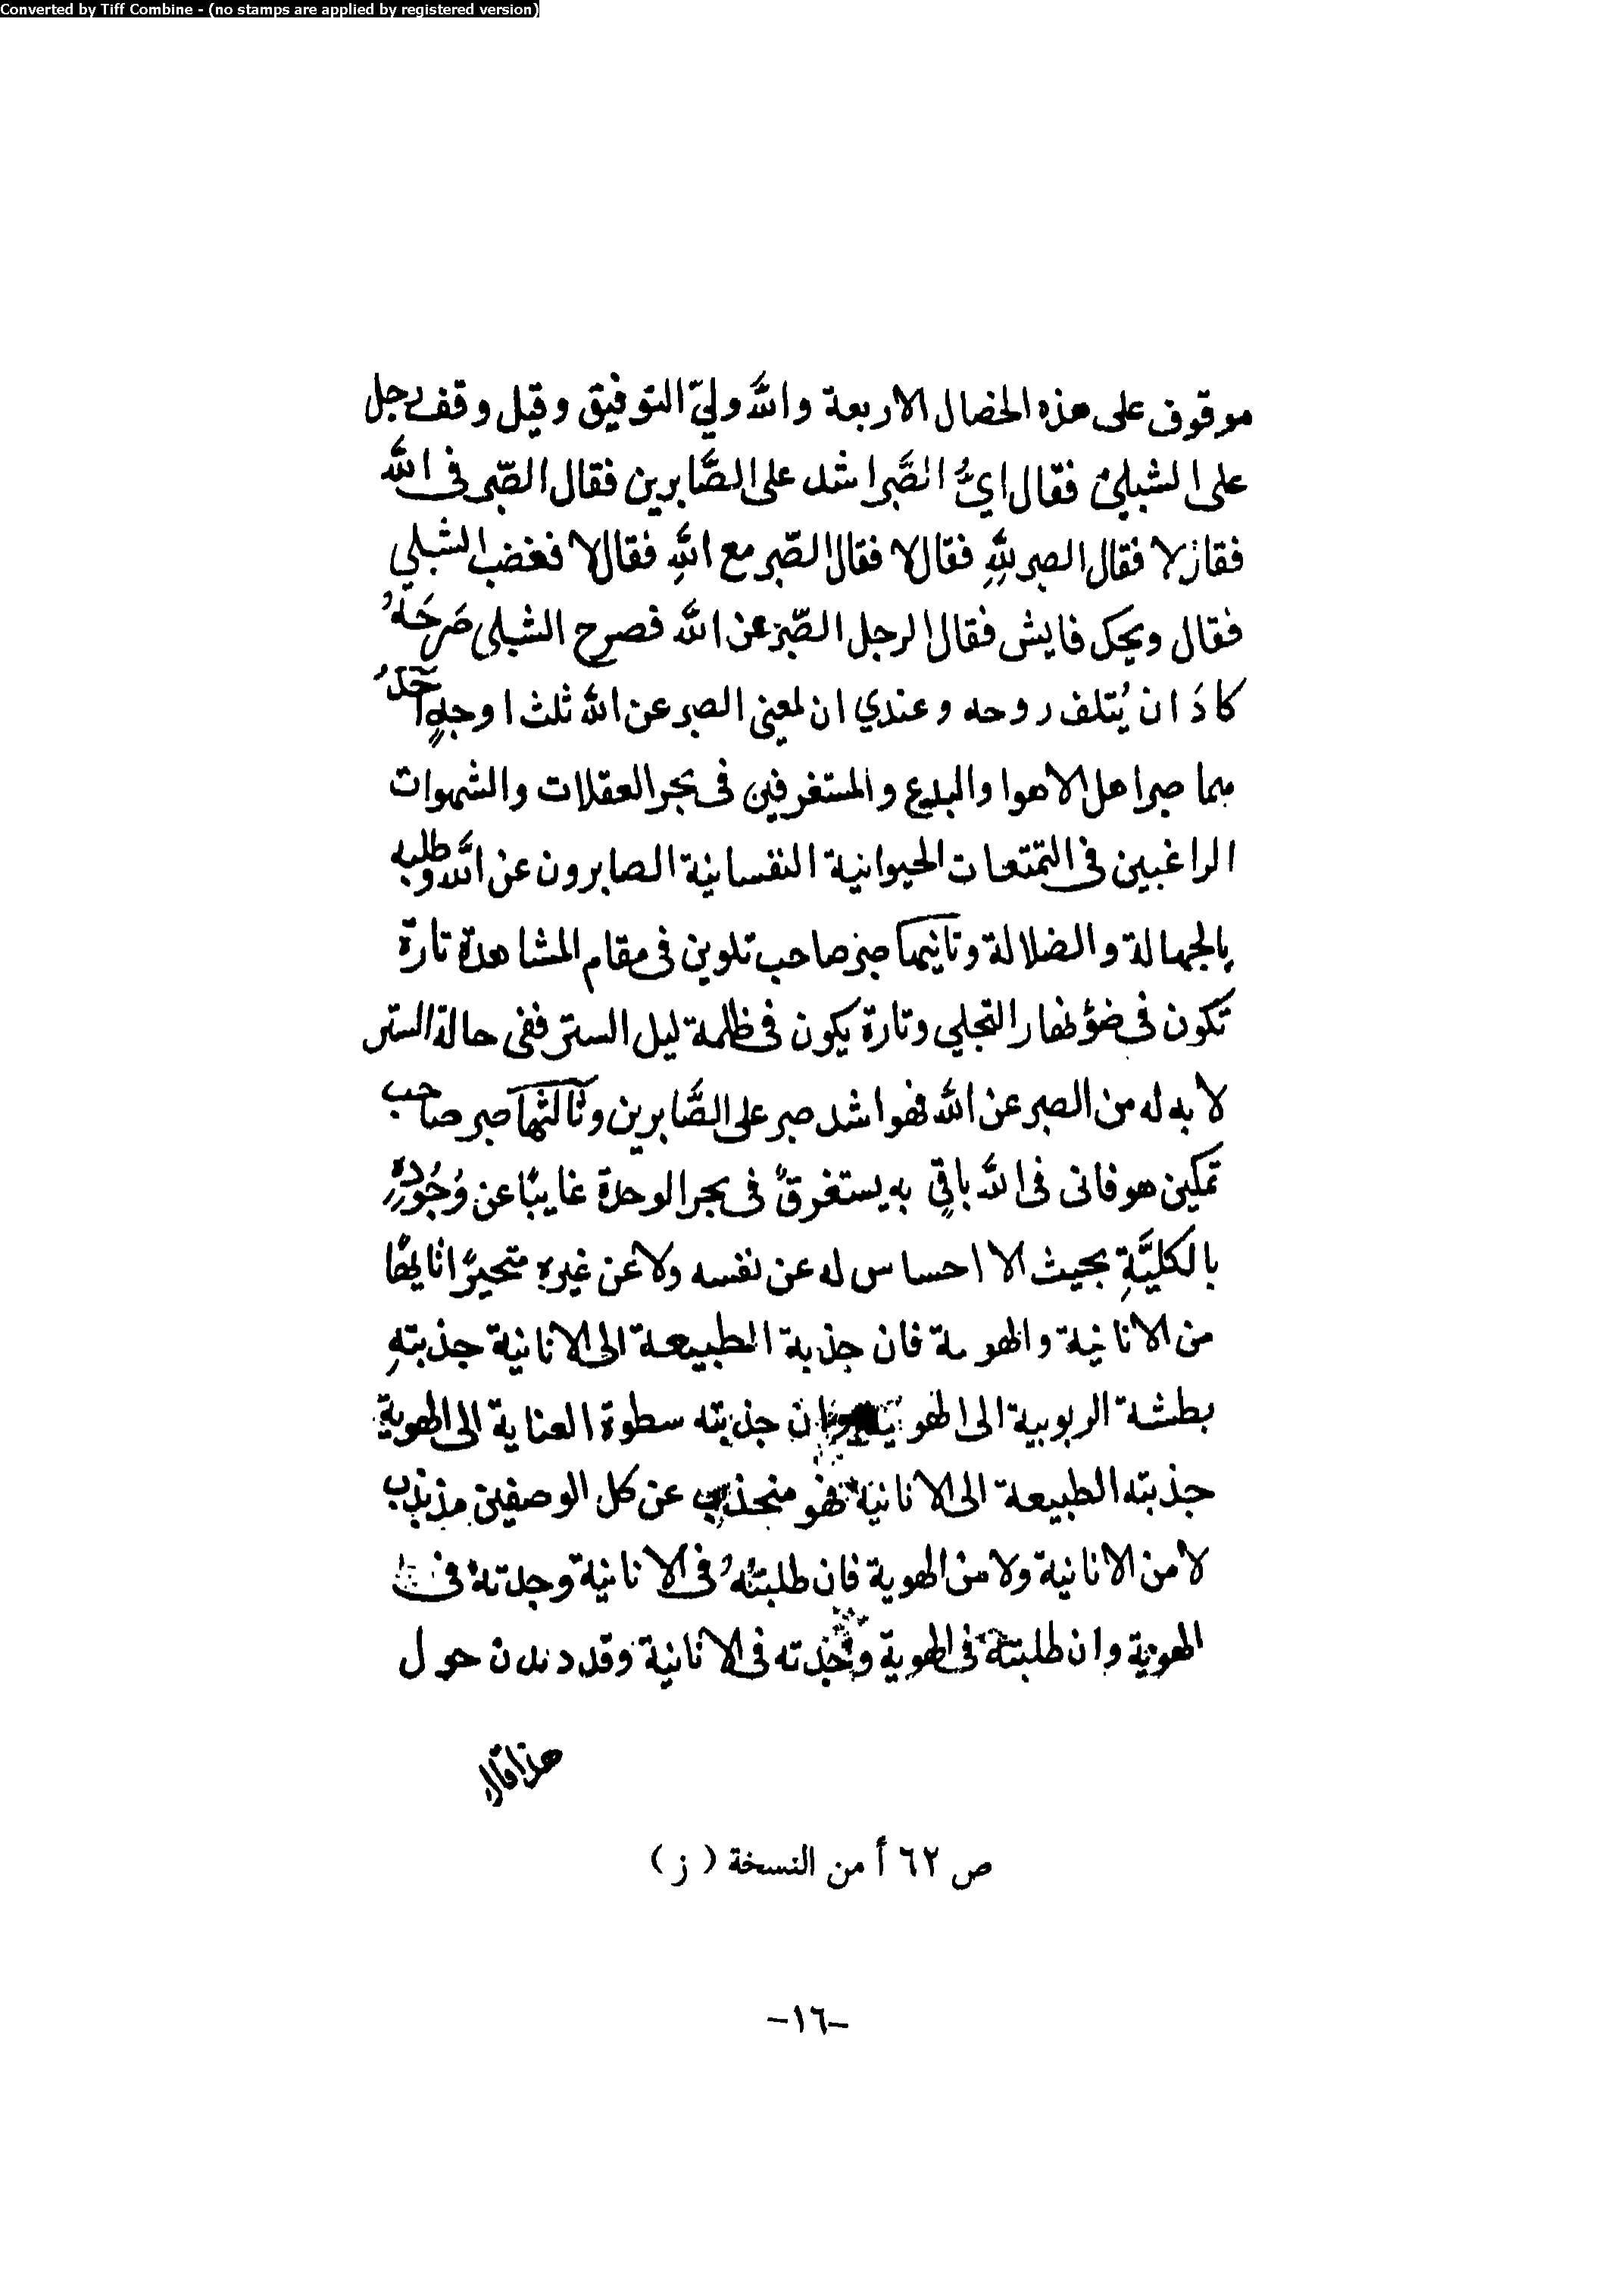 Converted by Tiff Combine - (no stamps are applied by registered version)
موقوف على هذه الخصال الاربعة والله وليّ التوفيق وقيل وقف رجل
على الشبلي فقال ايُّ الصَّبر اشد على الصَّابرين فقال الصّبر فى الله
فقال لا فقال الصبر للهِ فقال لا فقال الصّبر مع اللهِ فقال لا فغضب الشبلي
فقال ويحك فايش فقال الرجل الصّبر عن الله فصرخ الشبلى صَرخَةً
كادَ ان يُتلف روحه وعندي ان لمعنى الصبر عن الله ثلث اوجهٍ احدُ
هما صبر اهل الاهوا والبدع والمستغرقين فى بحر العقلات والشهوات
الراغبين فى التمتعات الحيوانية النفسانية الصابرون عن الله وطلبه
بالجهالة والضلالة وثانيها صبر صاحب تلوين فى مقام المشاهدة تارة
تكون فى ضؤ نهار التجلي وتارة يكون فى ظلمة ليل الستر ففى حالة الستر
لا بد له من الصبر عن الله فهو اشد صبر على الصَّابرين وثالثها صبر صاحب
تمكين هو فانى فى الله باقٍ به يستغرقُ فى بحر الوحدة غايبًا عن وُجُودِهِ
بالكليَّةِ بحيث لا احساس له عن نفسه ولا عن غيره متحيرًا تايهًا
من الانانية والهوية فان جذبة الطبيعة الى الانانية جذبتهِ
بطشة الربوبية الى الهوية وان جذبته سطوة العناية الى الهوية
جذبته الطبيعة الى الانانية فهو منجذب عن كل الوصفين مذبذب
لا من الانانية ولا من الهوية فان طلبتهُ فى الانانية وجدته فى
الهوية وان طلبته فى الهوية وجدته فى الانانية وقد دندن حول
هذا قال
ص ٦٢ أ من النسخة ( ز )
–١٦–